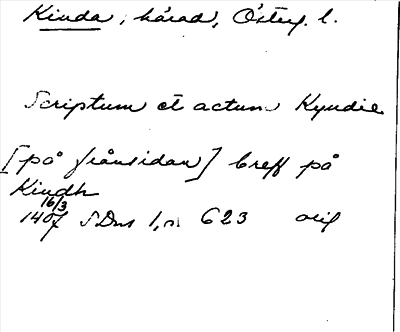 Kinda, härad, Österg. l.
Scriptum et actum Kyndie
[på frånsidan] breff på
Kindh
16/3
1407 SDns 1, n 623 orig